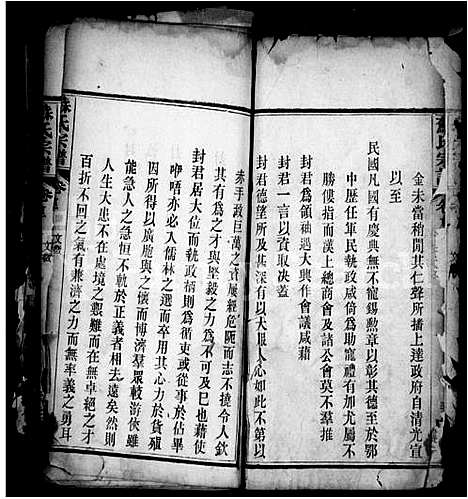 金未當稍閒其仁聲所播上達政府自清光宣
以至
民國凡國有慶典無不寵錫勳章以彰其德至於鄂
中歷任軍民執政咸倚為助寵禮有加尤屬不
勝僂指而漢上總商會及諸公會莫不羣推
封君為領袖遇大興作會議咸藉
封君一言以資取决蓋
封君德望所及其深有以大服人心如此不第以
赤手致巨萬之資屢經危阨而志不撓令人欽
其有為之才與堅毅之力為不可及已也藉使
封君居大位而執政柄則為循吏或從事於佔畢
咿唔亦必入儒林之選而卒用其心力於貨殖
因所得以廣胞與之懷而博濟羣眾較游俠雖
能急人之急恒不軌於正義者相去遠矣然則
人生大患不在處境之艱難而在無卓絕之才
百折不回之氣有兼濟之力而無率義之勇耳
蘇氏宗譜